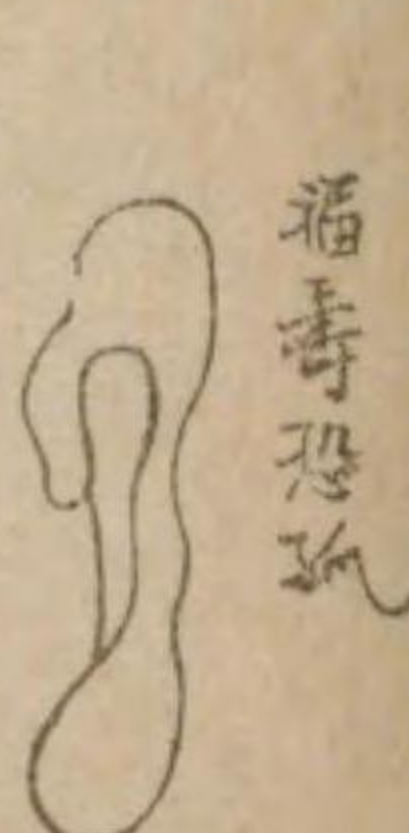 福壽恐孤